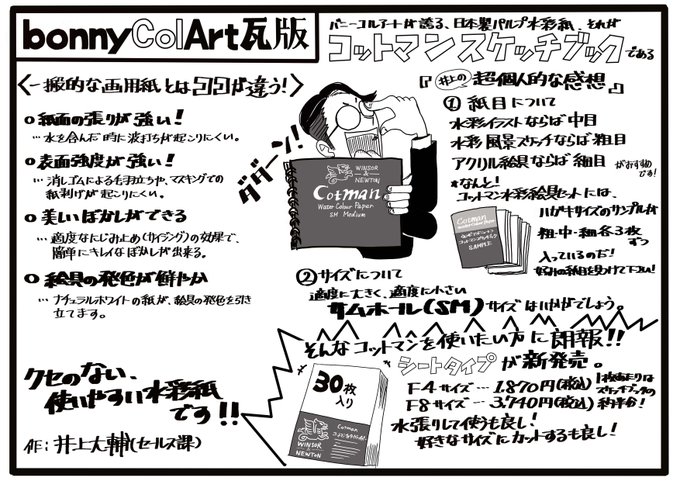 bonnyColArt瓦版
バニーコルアートが誇る、日本製パルプ水彩紙、それが
コットマンスケッチブックである
〈一般的な画用紙とはココが違う！〉
紙面の張りが強い！
…水を含んだ時に波打ちが起こりにくい。
表面強度が強い！
…消しゴムによる毛羽立ちや、マスキングでの
紙剥げが起こりにくい。
美しいぼかしができる
…適度なにじみ止め(サイジング)の効果で、
簡単にキレイなぼかしが出来る。
絵具の発色が鮮やか
…ナチュラルホワイトの紙が、絵具の発色を引き
立てます。
クセのない、
使いやすい水彩紙
です!!
作：井上大輔(セールス課)
ダダーン！
WINSOR
&
NEWTON
Cotman
Water Colour Paper
SM Medium
『井上の超個人的な感想』
①紙目について
水彩イラストならば中目
水彩風景スケッチならば粗目
アクリル絵具ならば細目
がおすすめ
です!
*なんと!
コットマン水彩絵具セットには、
ハガキサイズのサンプルが
粗・中・細各3枚
ずつ
入っているのだ!
好みの紙目を見つけて下さい!
Cotman
SAMPLE
②サイズについて
適度に大きく、適度に小さい
サムホール(SM)サイズはいかがでしょう。
そんなコットマンを使いたい方に朗報!!
シートタイプが新発売。
F4サイズ…1,870円(税込)
F8サイズ…3,740円(税込)
1枚あたりは
スケッチブックの
約半額!
水張りして使うも良し!
好きなサイズにカットするも良し!
30枚
入り
WINSOR
&
NEWTON
Cotman